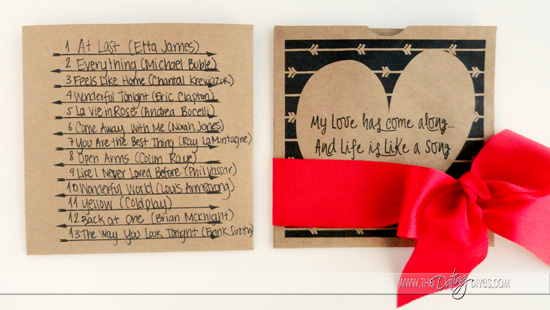 1 At Last (Etta James)
2 Everything (Michael Buble)
3 Feels Like Home (Chantal Kreviazuk)
4 Wonderful Tonight (Eric Clapton)
5 La Vie in Rose (Andrea Bocelli)
6 Come Away with Me (Norah Jones)
7 You Are the Best Thing (Ray LaMontagne)
8 Open Arms (Collin Raye)
9 Like I Never Loved Before (Phil Vassar)
10 Wonderful World (Louis Armstrong)
11 Yellow (Coldplay)
12 Back at One (Brian Mcknight)
13 The Way You Look Tonight (Frank Sinatra)
My Love has come along...
And Life is Like a Song
WWW.THEDatingDIVAS.COM